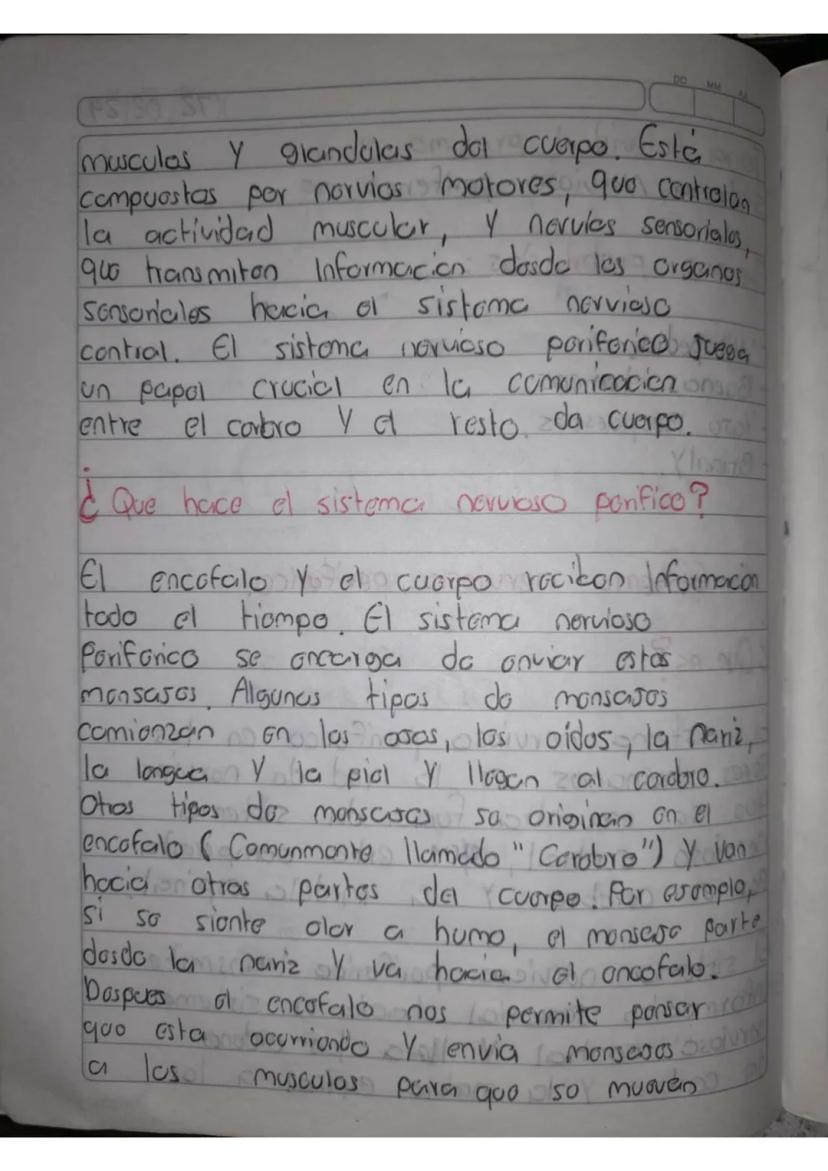 DD MM AA
musculas y glandulas del cuerpo. Está
compuestas por nervios motores, que controlan
la actividad muscular, y nervios sensoriales,
que transmiten Información desde los organos
sensoriales hacia el sistema nervioso
central. El sistema nervioso periferico juega
un papel crucial en la comunicacion
entre el cerbro y el resto de cuerpo.
¿Que hace el sistema nervioso perifico?
El encefalo y el cuerpo reciben Información
todo el tiempo. El sistema nervioso
Periferico se encarga de enviar estos
mensajes. Algunos tipos de mensajes
comienzan en los ojos, los oidos, la nariz,
la lengua y la piel y llegan al cerebro.
Otros tipos de mensajes se originan en el
encefalo (Comunmente llamado "Cerebro") y van
hacia otras partes del cuerpo. Por ejemplo,
si se siente olor a humo, el mensaje parte
desde la nariz y va hacia el encefalo.
Despues el encefalo nos permite pensar
que esta ocurriendo y envia mensajes
a los musculos para que se mueven